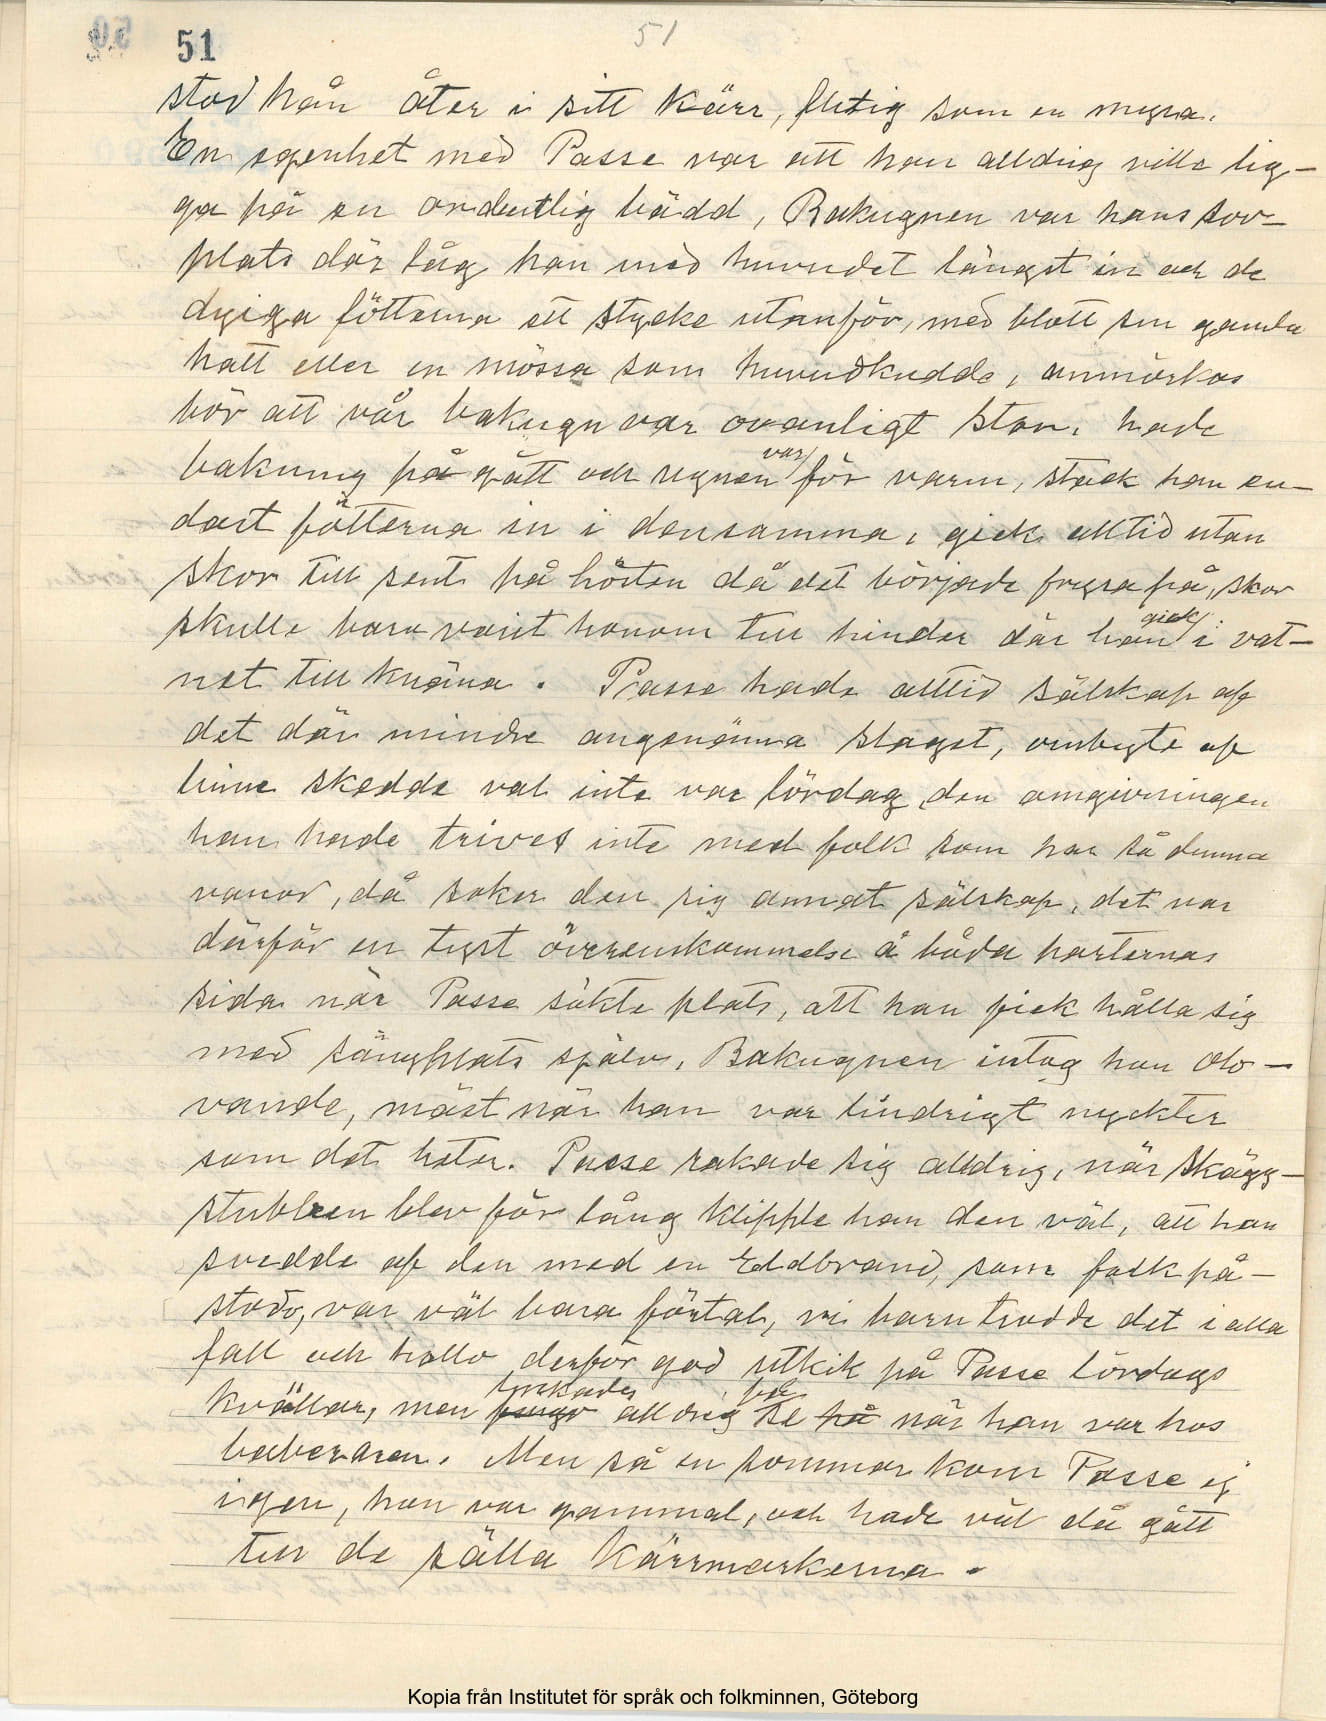 51
51
stod han åter i sitt Kärr, flitig som en myra.
En egenhet med Passe var att han alldrig ville lig-
ga på en ordentlig bädd, Bakugnen var hans sov-
plats där låg han med huvudet längst in och de
dyiga fötterna ett stycke utanför, med blott sin gamla
hatt eller en mössa som huvudkudde, anmärkas
bör att vår bakugn var ovanligt stor. hade
bakning på gått och ugnen var för varm, stack han en-
dast fötterna in i densamma, gick alltid utan
skor till sent på hösten då det började frysa på, skor
skulle bara varit honom till hinder där han gick i vat-
net till knäna. Passe hade alltid sälskap af
det där mindre angenäma slaget, ombyte af
linne skedde väl inte var lördag, den omgivningen
han hade trives inte med folk som har så dumma
vanor, då söker den sig annat sälskap, det var
därför en tyst överenskommelse å båda parternas
sida när Passe sökte plats, att han fick hålla sig
med sängplats själv. Bakugnen intog han olo-
vande, mäst när han var lindrigt nyckter
som det heter. Passe rakade sig alldrig, när skägg-
stubben blev för lång klippte han den väl, att han
svedde af den med en Eldbrand, som folk på-
stodo, var väl bara förtal, vi barn trodde det i alla
fall och hollo derför god utkik på Passe lördags
kvällar, men lyckades alldrig få se när han var hos
baberaren. Men så en sommar kom Passe ej
igen, han var gammal, och hade väl då gått
till de sälla Kärrmarkerna.
Kopia från Institutet för språk och folkminnen, Göteborg